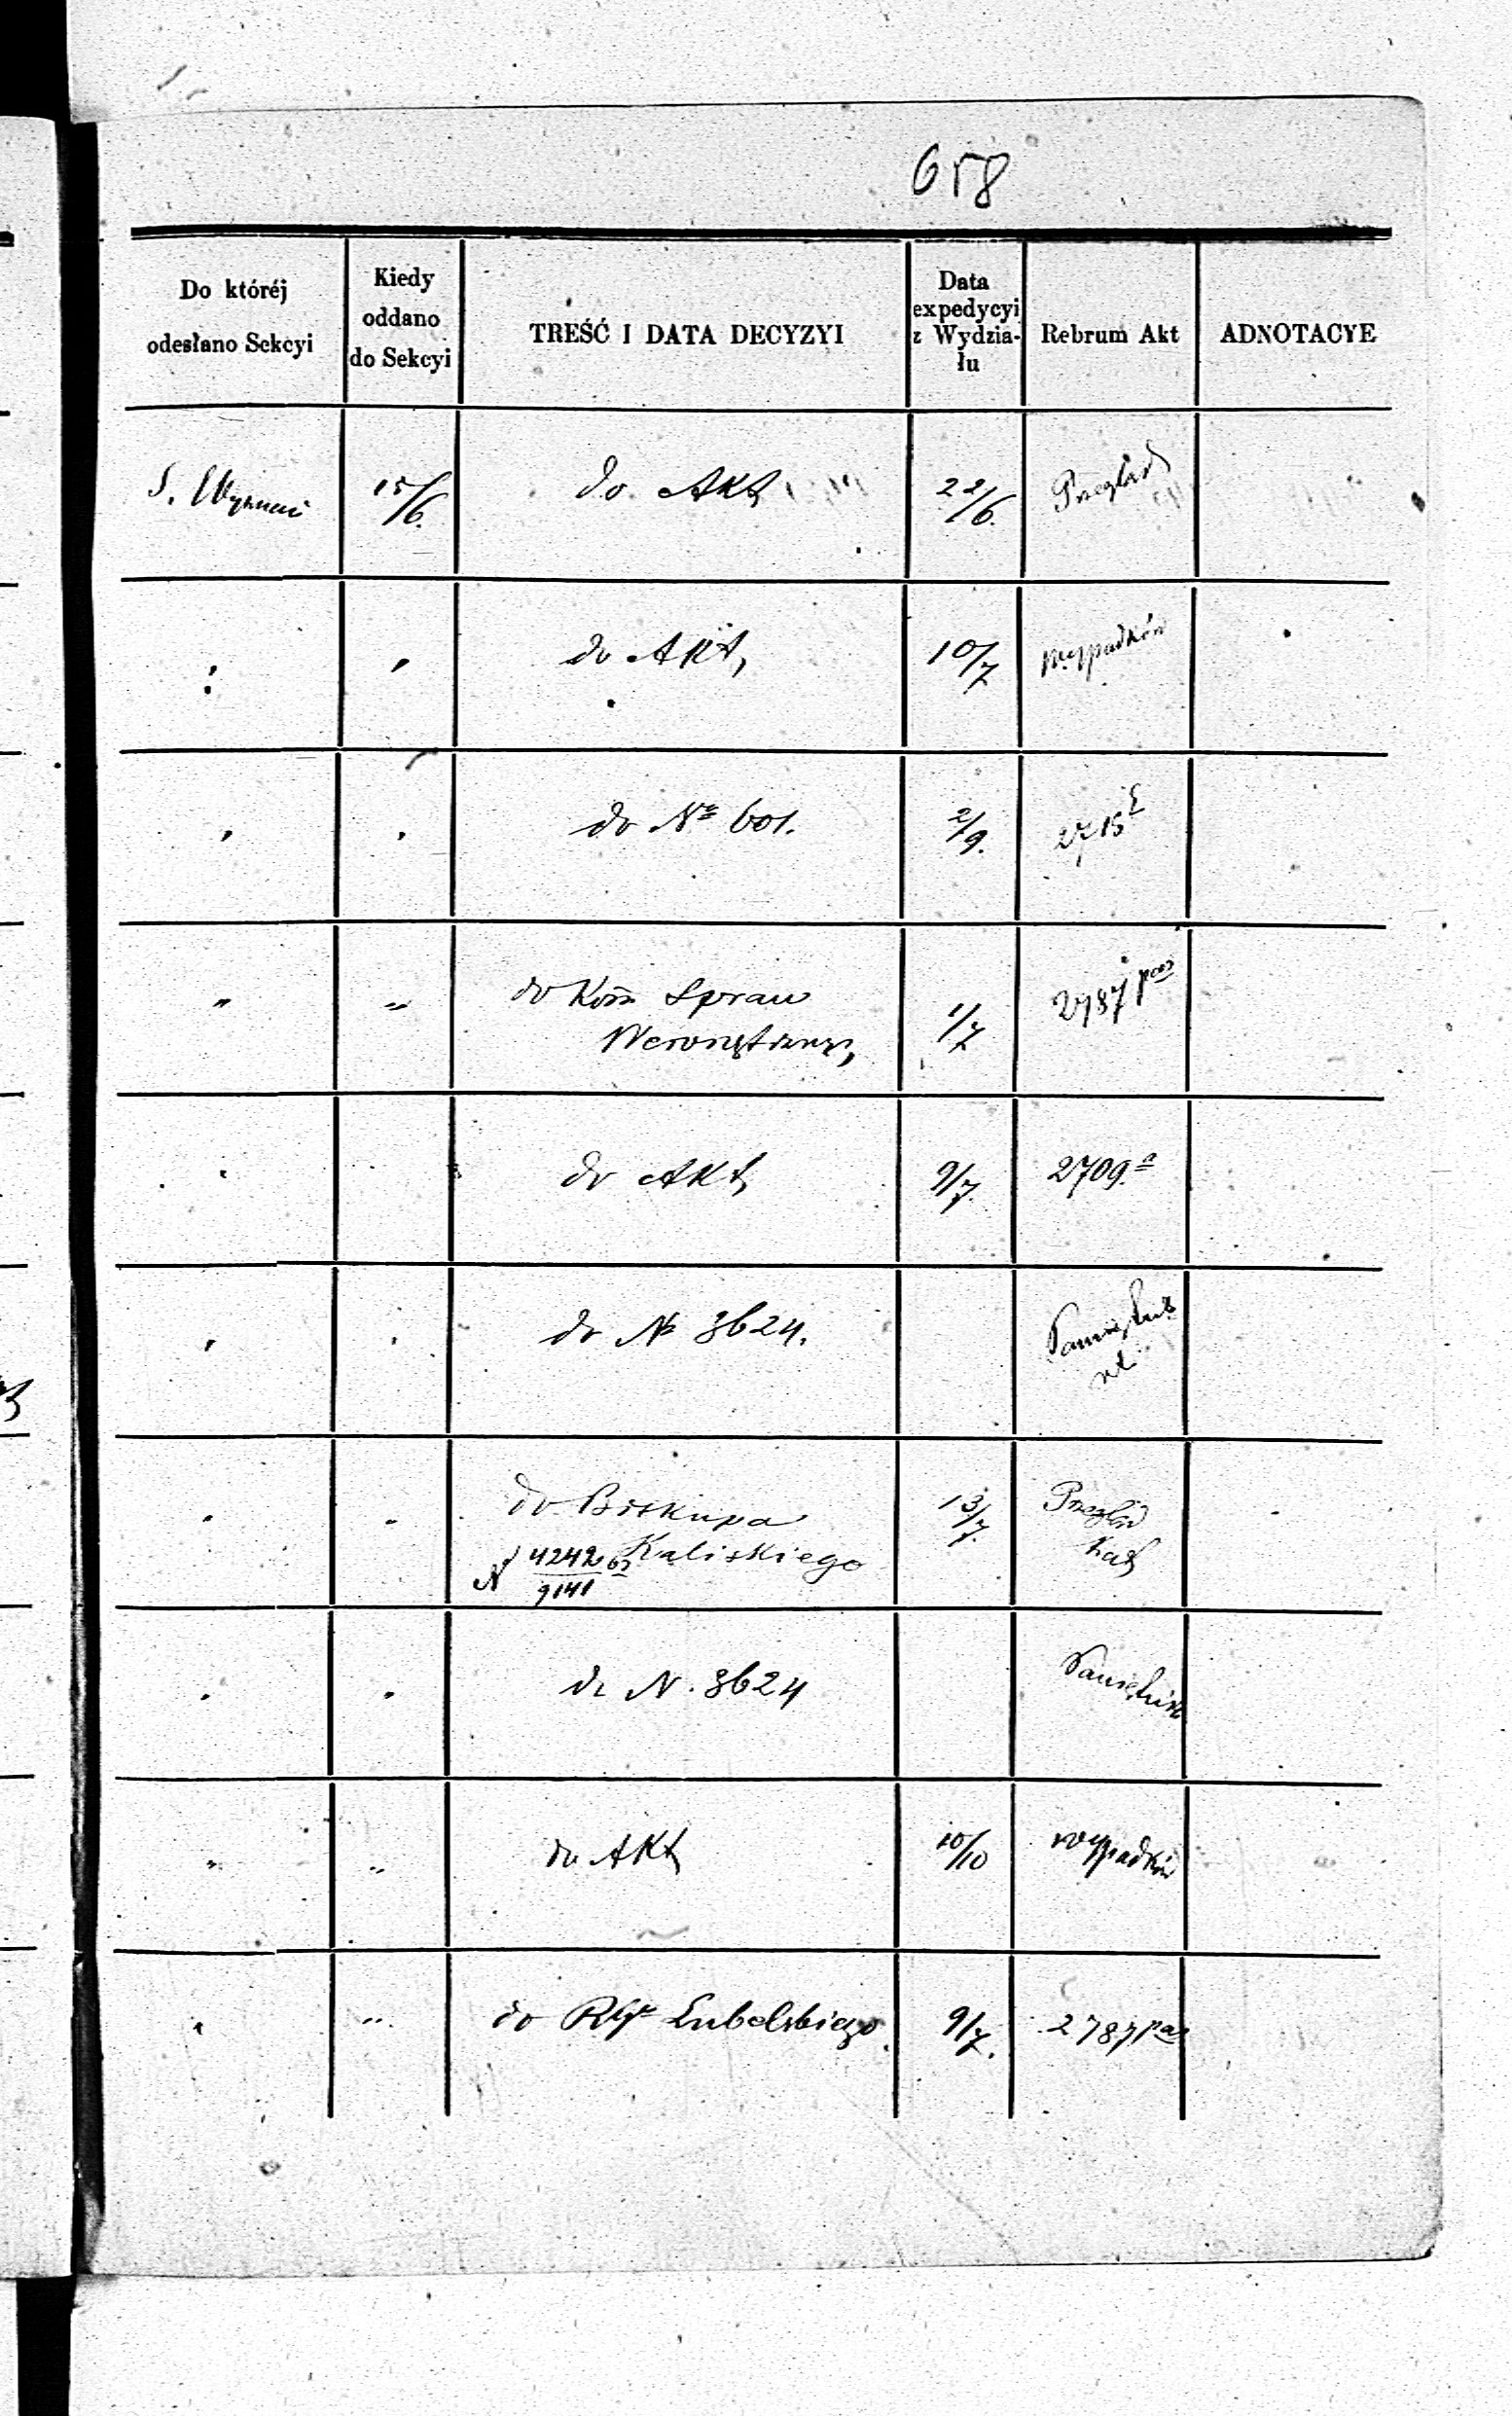 658
Do któréj odesłano Sekcyi | Kiedy oddano do Sekcyi | TREŚĆ I DATA DECYZYI | Data expedycyi z Wydzia-łu | Rebrum Akt | ADNOTACYE
S. Wyznań | 15/6. | do Akt | 22/6. | Przegląd
" | " | do Akt, | 10/7 | wypadków
" | " | do Nr 601. | 2/9. | 2715
" | " | do Kom Spraw | 1/7 | 2787 pas
Wewnętrzny,
" | " | do Akt, | 9/7. | 2709.a
" | " | do N 3624.
" | " | do Biskupa | 13/7. | Przegląd
Kaliskiego
N 4242/9141
" | " | do N. 3624
" | " | do Akt | 10/10 | wypadków
" | " | do Lubelskiego. | 9/7. | 2787 pas